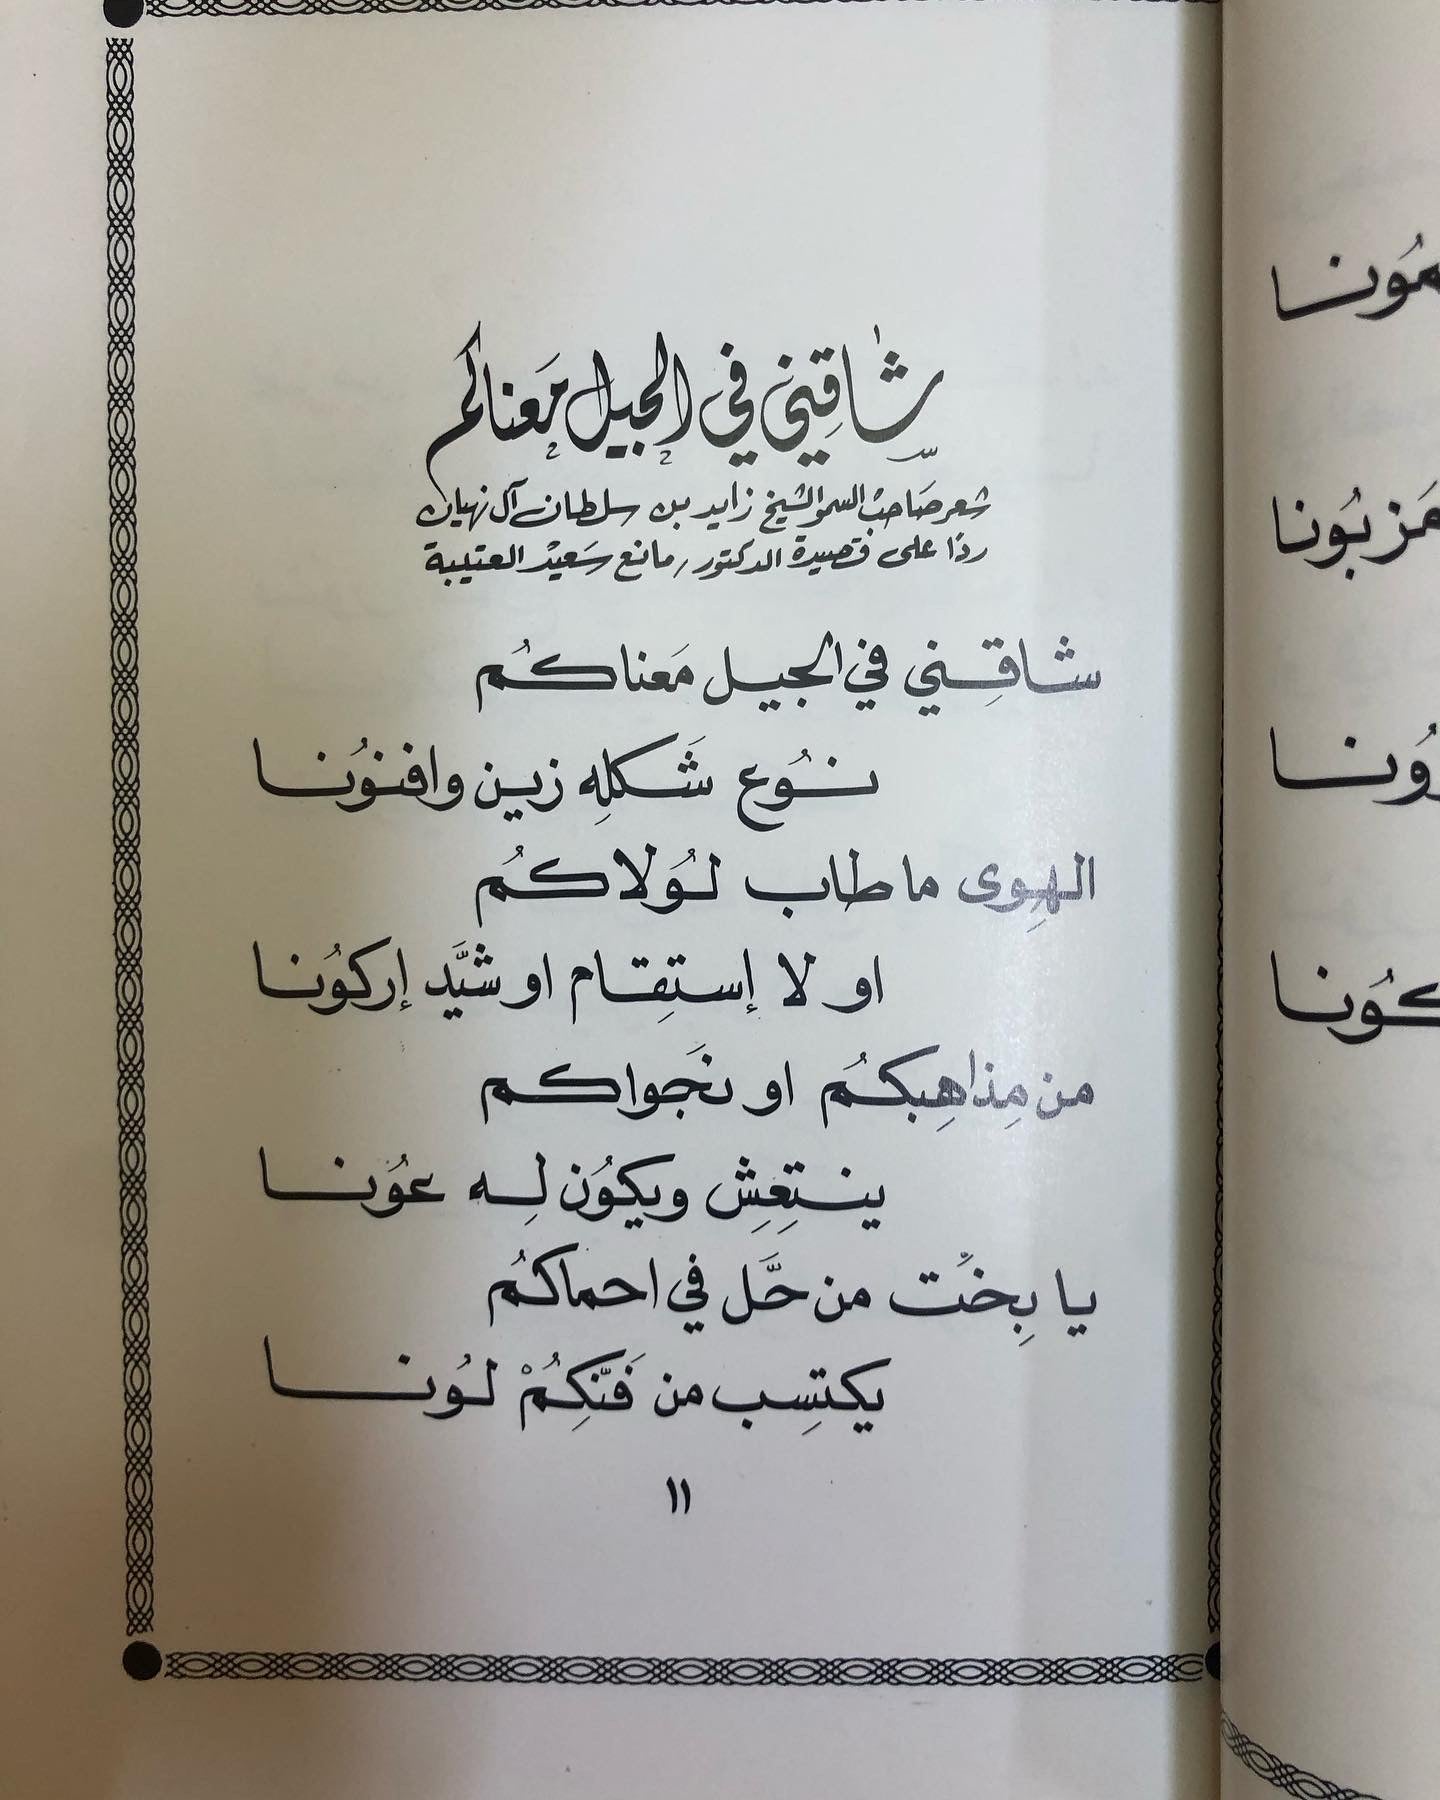 شاقِني في الجيل مَعناكم
شعر صَاحبْ السمو الشيخ زايد بن سلطان آل نهيان
ردًا على قصيدة الدكتور / مانع سَعيْد العتيبة
شاقِني في الجيل مَعناكُم
نُوع شَكلِه زين وافنُونا
الهِوى ما طاب لُولاكُم
او لا إستِقام او شيَّد إركُونا
من مِذاهِبكُم او نَجواكم
ينتِعِش ويكُون لِه عُونا
يا بِخْت من حَّل في احماكُم
يكتِسِب من فَنّكِمُْ لُونا
١١
مُونا
مَزبُونا
ونا
كُونا